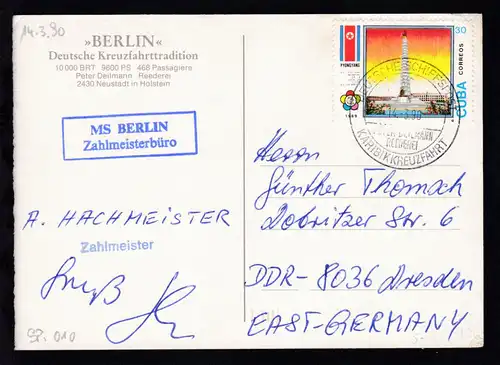 14.3.90
»BERLIN«
Deutsche Kreuzfahrttradition
10 000 BRT 9800 PS 468 Passagiere
Peter Deilmann Reederei
2430 Neustadt in Holstein
MS BERLIN
Zahlmeisterbüro
A. HACHMEISTER
Zahlmeister
Gruß
SP. 010
PYONGYANG
1989
30
CORREOS
CUBA
REEDEREI
KARIBIKKREUZFAHRT
Herrn
Günther Thomach
Dobritzer Str. 6
DDR-8036 Dresden
EAST-GERMANY